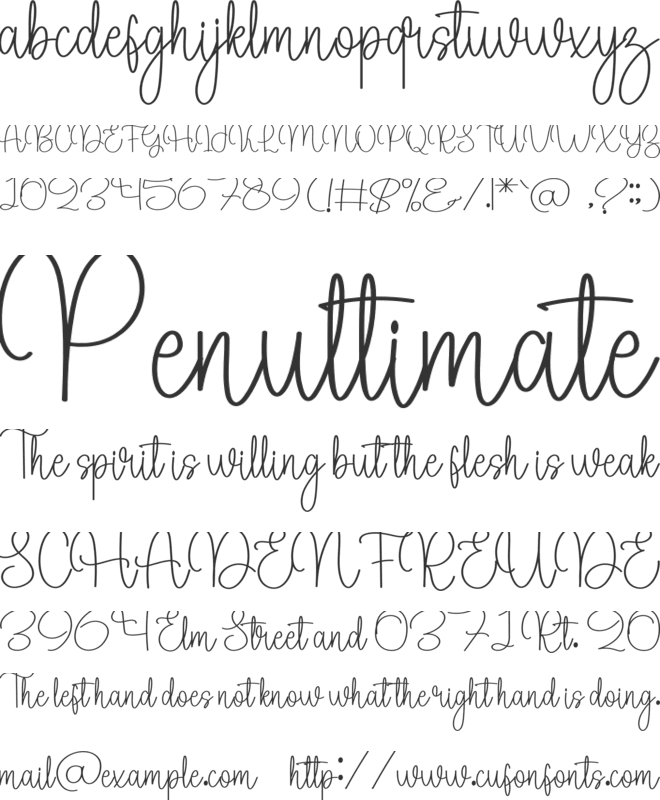 abcdefghijklmnopqrstuvwxyz
ABCDEFGHIJKLMNOPQRSTUVWXYZ
1023456789(!#$%&/.|*`@ ,?:;)
Penultimate
The spirit is willing but the flesh is weak
SCHADENFREUDE
3964 Elm Street and 0371 Rt. 20
The left hand does not know what the right hand is doing.
mail@example.com http://www.cufonfonts.com